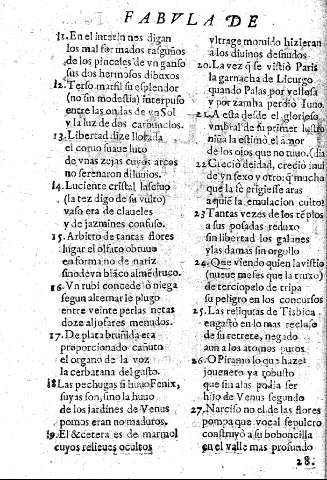 FABVLA DE
11. En el interin nos digan
los mal formados rasguños
de los pinceles de vn ganso
sus dos hermosos dibuxos
12. Terso marfil su esplendor
(no sin modestia) interpuso
entre las ondas de vn Sol
y la luz de dos carbunclos.
13. Libertad dize llorada
el coruo suaue luto
de vnas zejas cuyos arcos
no serenaron diluuios.
14. Luciente cristal lasciuo
(la tez digo de su vulto)
vaso era de claueles
y de jazmines confusos.
15. Arbitro de tantas flores
lugar el olfato obtuuo
en forma no de nariz
sino de vn blāco almēdruco.
16. Vn rubi concede ò niega
segun alternar le plugo
entre veinte perlas netas
doze aljofares menudos.
17. De plata bruñida era
proporcionado cañuto
el organo de la voz
la cerbatana del gusto.
18 Las pechugas si huuo Fenix,
suyas son, sino la huuo
de los jardines de Venus
pomos eran no maduros.
19. El &cetera es de marmol
cuyos relieues ocultos
vltrage morvido hizieran
a los diuinos desnudos
20. La vez q̄ se vistiò Paris
la garnacha de Licurgo
quando Palas por vellosa
y por zamba perdiò Iuno.
21. A esta desde el glorioso
vmbral de su primer lustro
niña la estimò el amor
de los ojos que no tuuo.
22 Creciò deidad, creciò inuidia
de vn sexo y otro: q̄ mucho
que la fè erigiesse aras
a quiē la emulacion cultos
23 Tantas vezes de los tēplos
a sus posadas reduxo
sin libertad los galanes
y las damas sin orgullo
24. Que viendo quien la vistio
(nueue meses que la truxo)
de terciopelo de tripa
su peligro en los concursos
25. Las reliquias de Tisbica
engastò en lo mas recluso
de su retrete, negado
aun a los atomos puros
26. O Piramo lo que hazes
joueneto ya robusto
que sin alas podia ser
hijo de Venus segundo
27. Narciso no el de las flores
pompa que vocal sepulcro
construyò a su boboncilla
en el valle mas profundo
28.